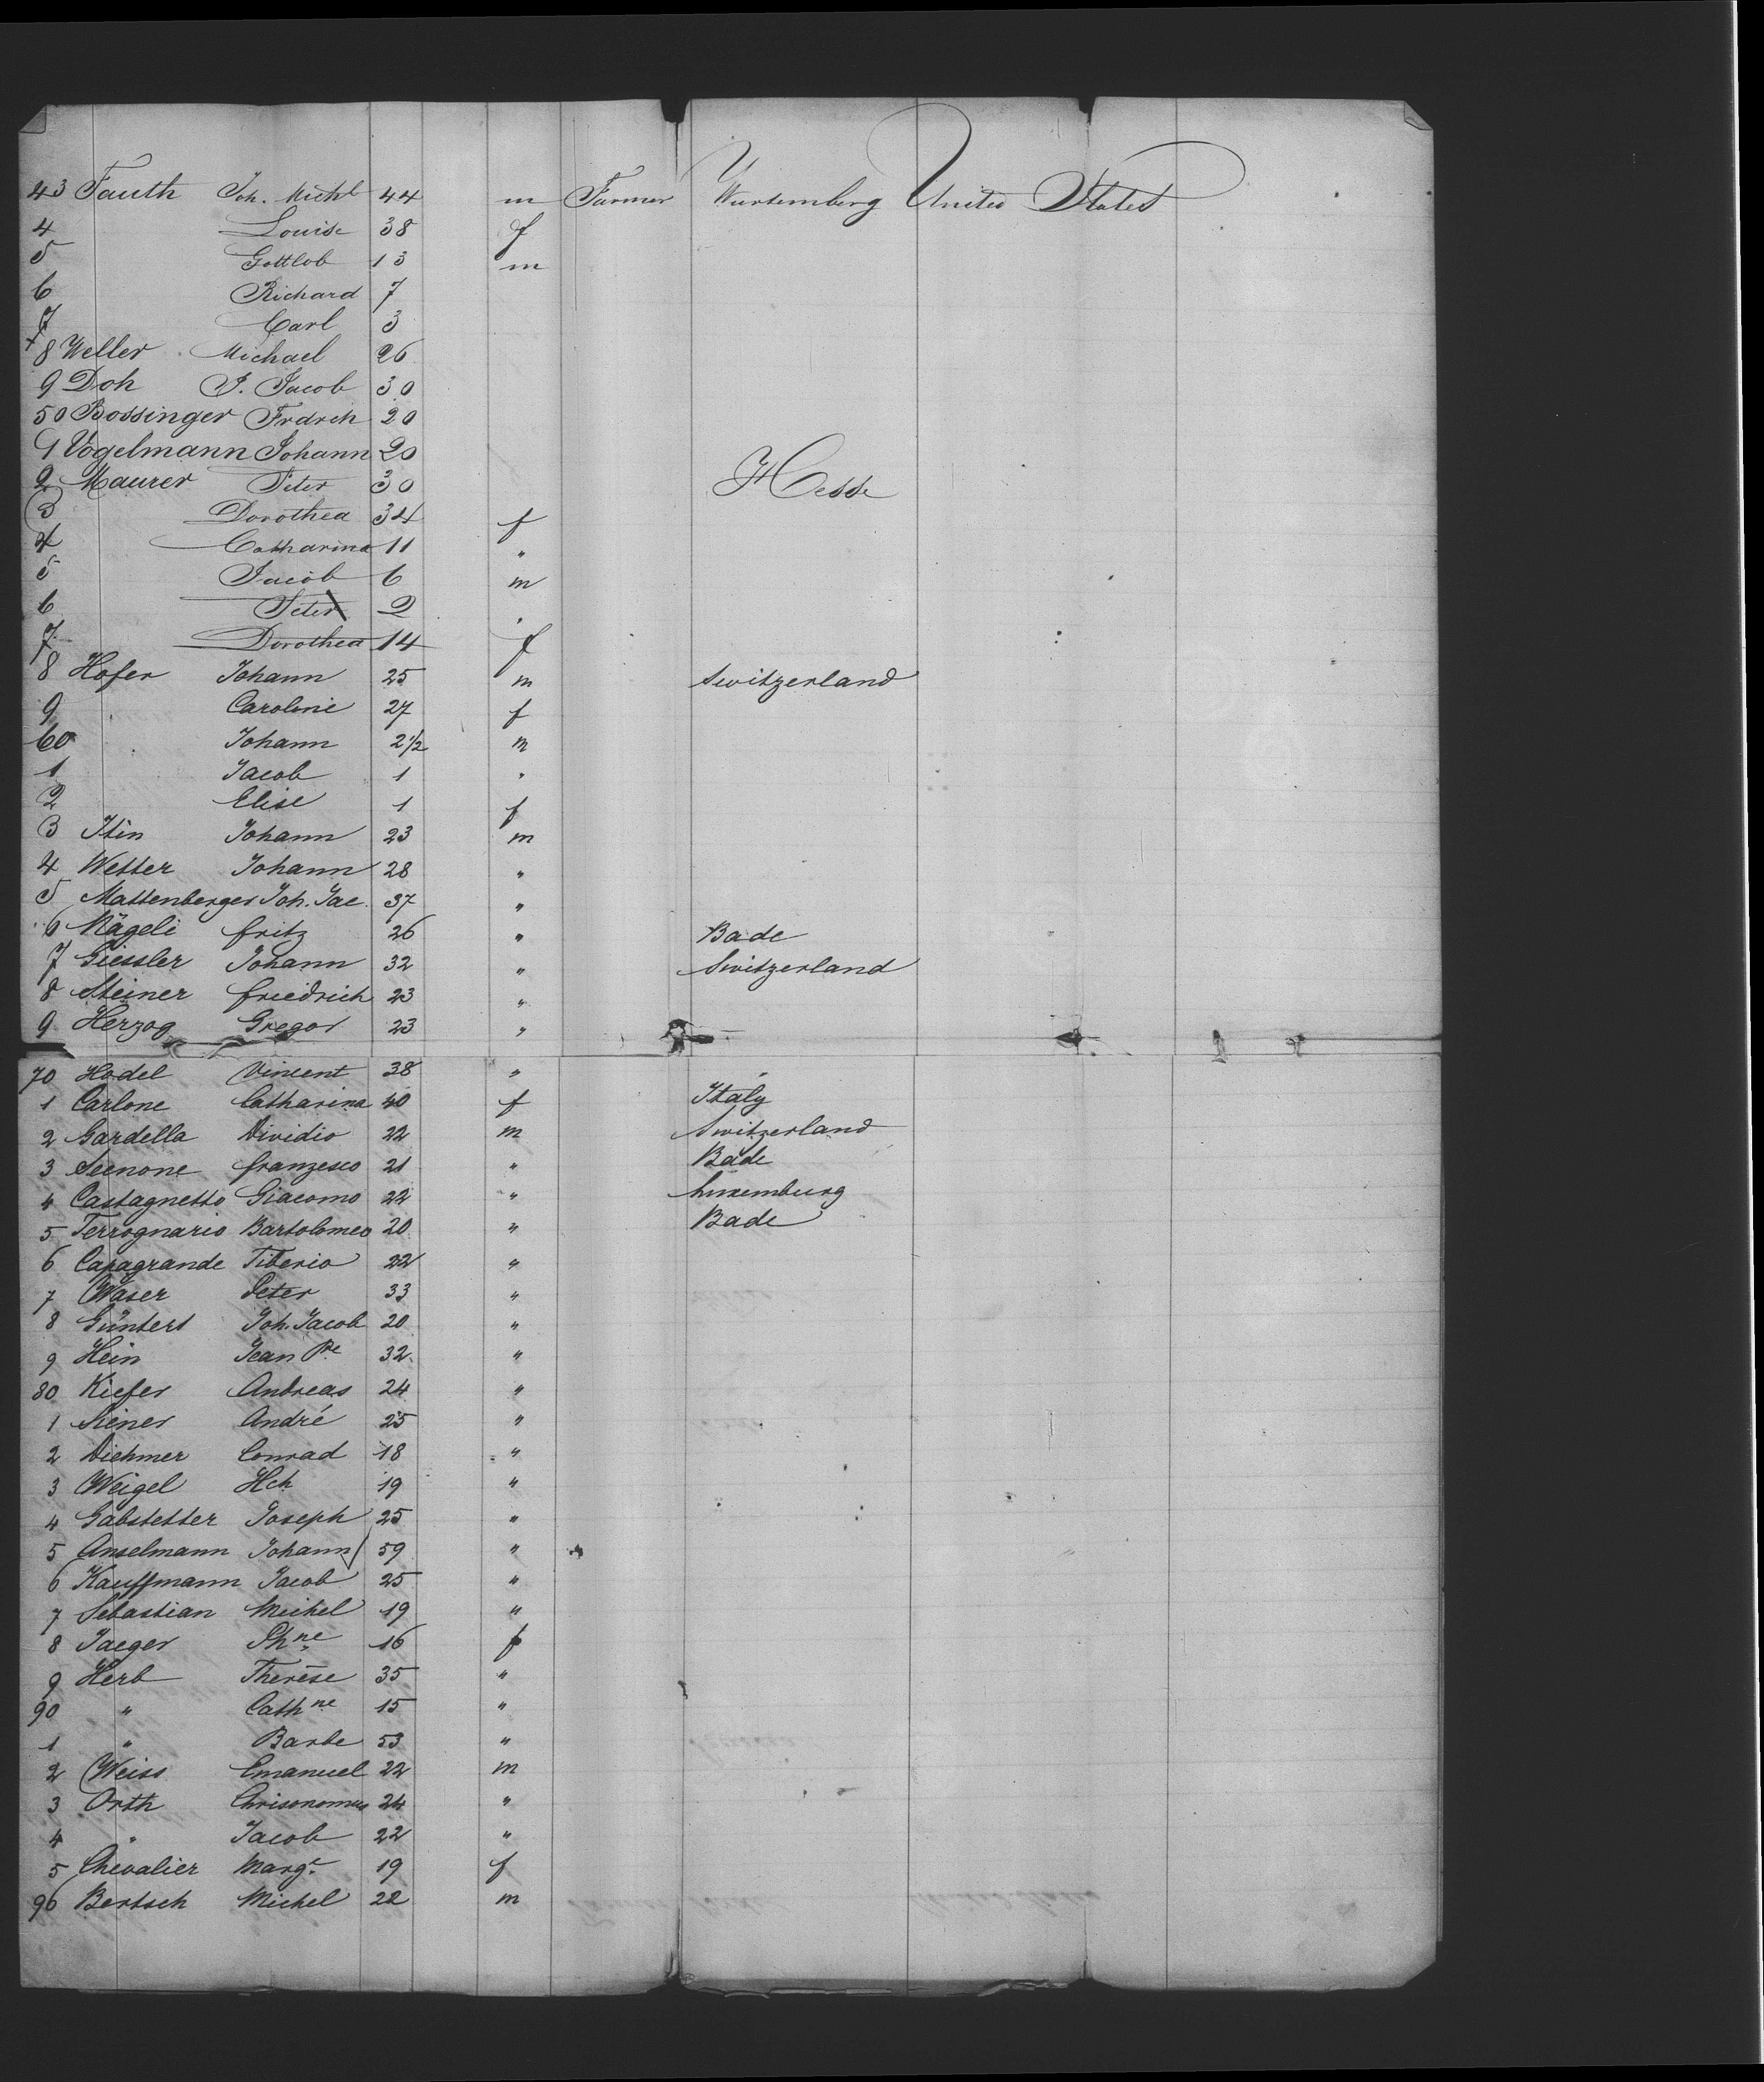 43 Fauth Joh. Michl 44 m Farmer Wurtemberg United States
4 Louise 38 f
5 Gottlob 13 m
6 Richard 7
7 Carl 3
8 Weller Michael 26
9 Doh J. Jacob 30
50 Bossinger Frdrch 20
1 Vogelmann Johann 20
2 Maurer Peter 30 Hesse
3 Dorothea 34 f
4 Catharina 11 "
5 Jacob 6 m
6 Peter 2
7 Dorothea 14 f
8 Hofer Johann 25 m Switzerland
9 Caroline 27 f
60 Johann 2 1/2 m
1 Jacob 1 "
2 Elise 1 f
3 Itin Johann 23 m
4 Wetter Johann 28 "
5 Mattenberger Joh. Jac. 37 "
6 Nägeli fritz 26 " Bade
7 Giessler Johann 32 " Switzerland
8 Steiner friedrich 23 "
9 Herzog Gregor 23 "
70 Hodel Vincent 38 "
1 Carlone Catharina 40 f Italy
2 Gardella Dividio 22 m Switzerland
3 franzesco 21 " Bade
4 Castagnetto Giacomo 22 " Luxemburg
5 Ferrognario Bartolomeo 20 " Bade
6 Capagrande Tiberio 22 "
7 Waser Peter 33 "
8 Güntert Joh. Jacob 20 "
9 Hein Jean Pre 32 "
80 Kiefer Andreas 24 "
1 André 25 "
2 Diehmer Conrad 18 "
3 Weigel Hch 19 "
4 Gabstetter Joseph 25 "
5 Anselmann Johann 59 "
6 Kauffmann Jacob 25 "
7 Sebastian Michel 19 "
8 Jaeger Phne 16 f
9 Herb Therese 35 "
90 " Cathne 15 "
1 " Barbe 53 "
2 Weiss Emanuel 22 m
3 Orth Chrisonomus 24 "
4 " Jacob 22 "
5 Chevalier Marge 19 f
96 Bertsch Michel 22 m